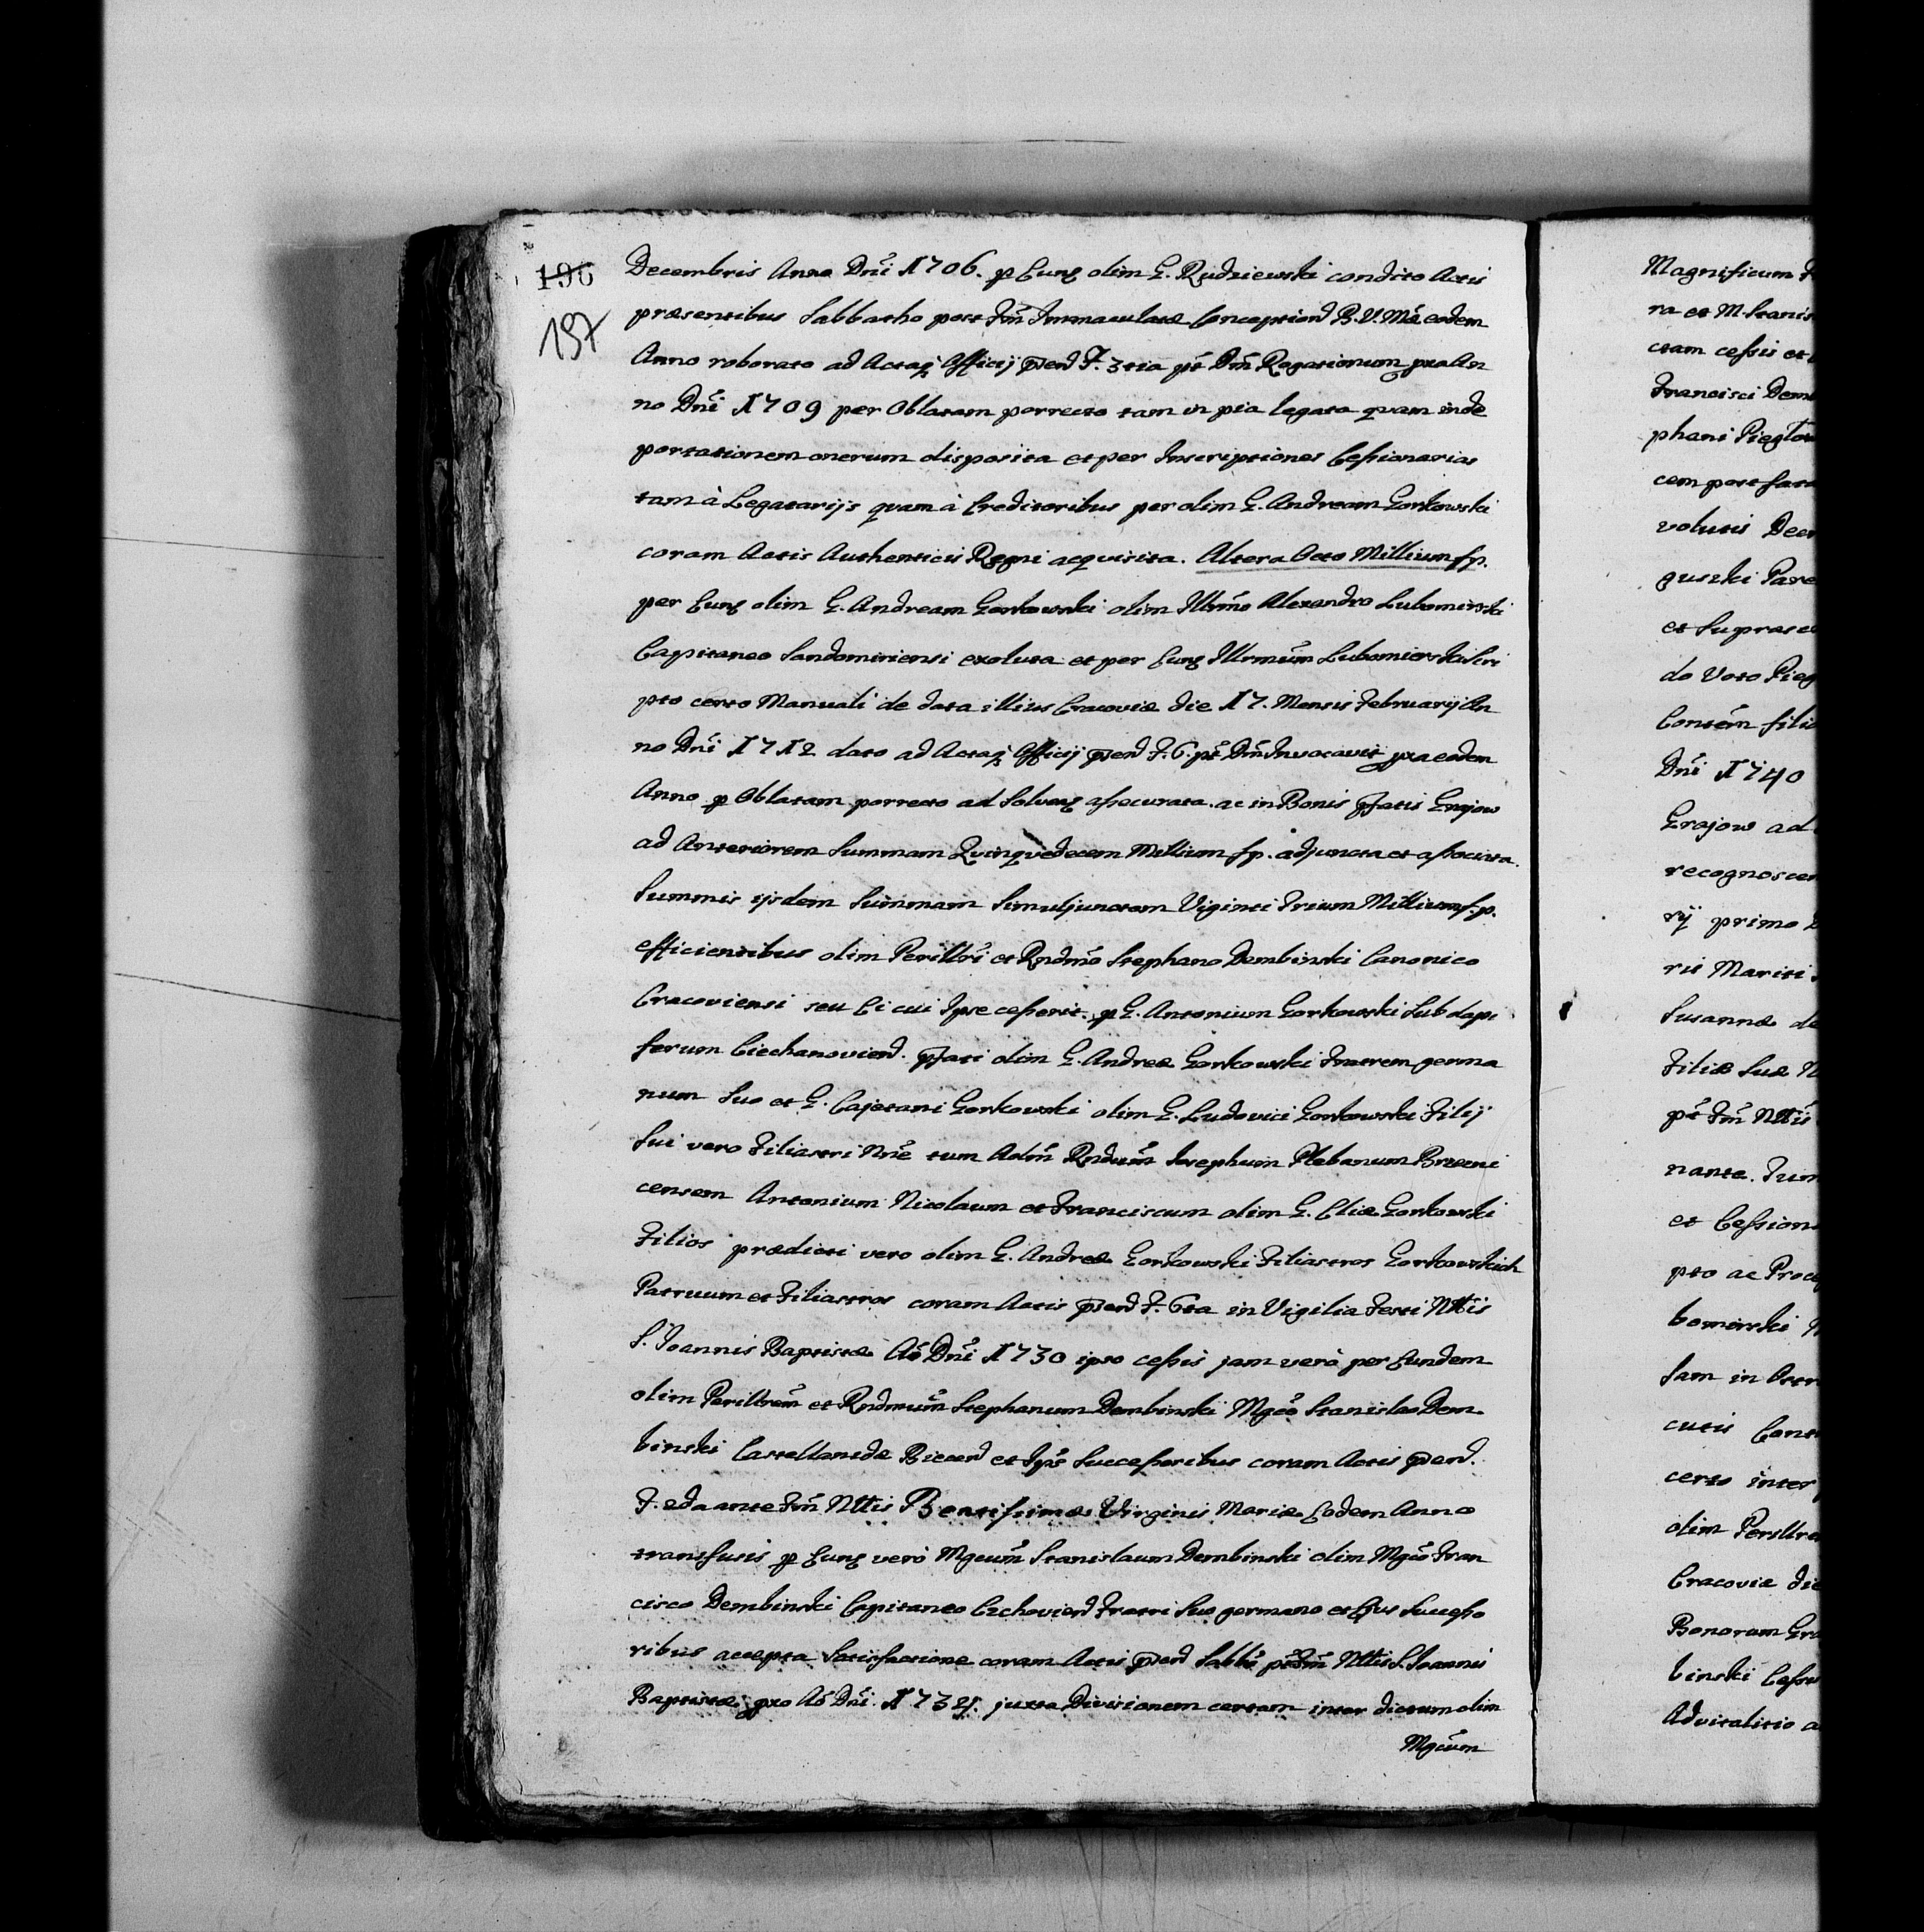 196
197
Decembris Anno Dnî 1706. p Eunq olim G. Rudziewski condito Actis
præsentibus Sabbatho post Fm̃ Immaculatæ Conceptionis B. V. Mæ eodem
Anno roborato ad Actaq Officij p̃send F. 3tia pt̃ Dm̃ Rogationum pxa An
no Dnî 1709 per Oblatam porrecto tam in pia legata quam in de
portationem onerum disposita et per Inscriptiones Cessionarias
tam à Legatarijs quam à Creditoribus per olim G. Andream Gorkowski
coram Actis Authenticis Regni acquisita. Altera Octo Millium fp.
per Eunq olim G. Andream Gorkowski olim Illrm̃o Alexandro Lubomirski
Capitaneo Sandomiriensi exoluta et per Eunq Illrmũm Lubomirski Scri
pto certo Manuali de data illius Cracoviæ die 17. Mensis Februarij An
no Dnî 1712 dato ad Actaq Officij p̃send F. 6. pt̃ Dm̃ Invocavit pxa eodem
Anno p Oblatam porrecto ad Solvenq assecurata. ac in Bonis p̃fatis Grajow
ad Anteriorem Summam Quinquedecem Millium fp. adjuncta et associata.
Summis ijsdem Summam Simul junctam Viginti Trium Millium f.p.
efficientibus olim Perillrî et Rndm̃o Stephano Dembinski Canonico
Cracoviensi seu Ei cui Ipse cesserit. p G. Antonium Gorkowski Subdapi
ferum Ciechanoviend. p̃fati olim G. Andreæ Gorkowski Fratrem germa
num Suo et G. Cajetani Gorkowski olim G. Ludovici Gorkowski Filij
Sui vero Filiastri Nñe tum Adm̃ Rndũm Josephum Plebanum Brzeni
censem Antonium Nicolaum et Franciscum olim G. Eliæ Gorkowski
Filios prædicti vero olim G. Andreæ Gorkowski Filiastros Gorkowskich
Patruum et Filiastros coram Actis p̃send F. 6ta in Vigilia Festi Nttis
S. Joannis Baptistæ Aõ Dnî 1730 ipso cessis jam verò per Eundem
olim Perillrem̃ et Rndmũm Stephanum Dembinski Mgcõ Stanislao Dem
binski Castellanidæ Biecend et Ips̃ Successoribus coram Actis p̃send.
F. 2da ante Fm̃ Nttis Beatissimæ Virginis Mariæ Eodem Anno
transfusis p Eunq verò Mgcũm Stanislaum Dembinski olim Mgcõ Fran
cisco Dembinski Capitaneo Czchoviend Fratri Suo germano et Ejus Successo
ribus accepta Satisfactione coram Actis p̃send Sabbõ pt̃ Fm̃ Nttis S. Joannis
Baptistæ pxo Aõ Dnî. juxta Divisionem certam inter dictum olim
Mgcũm
Magnificum
ra et M. Stanis
ctam cessis et
Francisci Dem
phani Piegło
cem post fata
volutis Dec
guszki Pare
et Supra
do Voto Pieg
Contẽm filio
Dnî 1740
Grajow ad
recognoscen
rij primo
ris Mariti
Susannæ de
Filiæ Suæ N
pt̃ Fm̃ Nttis
nante. Tum
et Cession
pto ac Proc
bomirski
sam in
cutis Cont
certo inter
olim Perillre
Cracoviæ die
Bonorum Gra
binski Cess
Advitalitio a